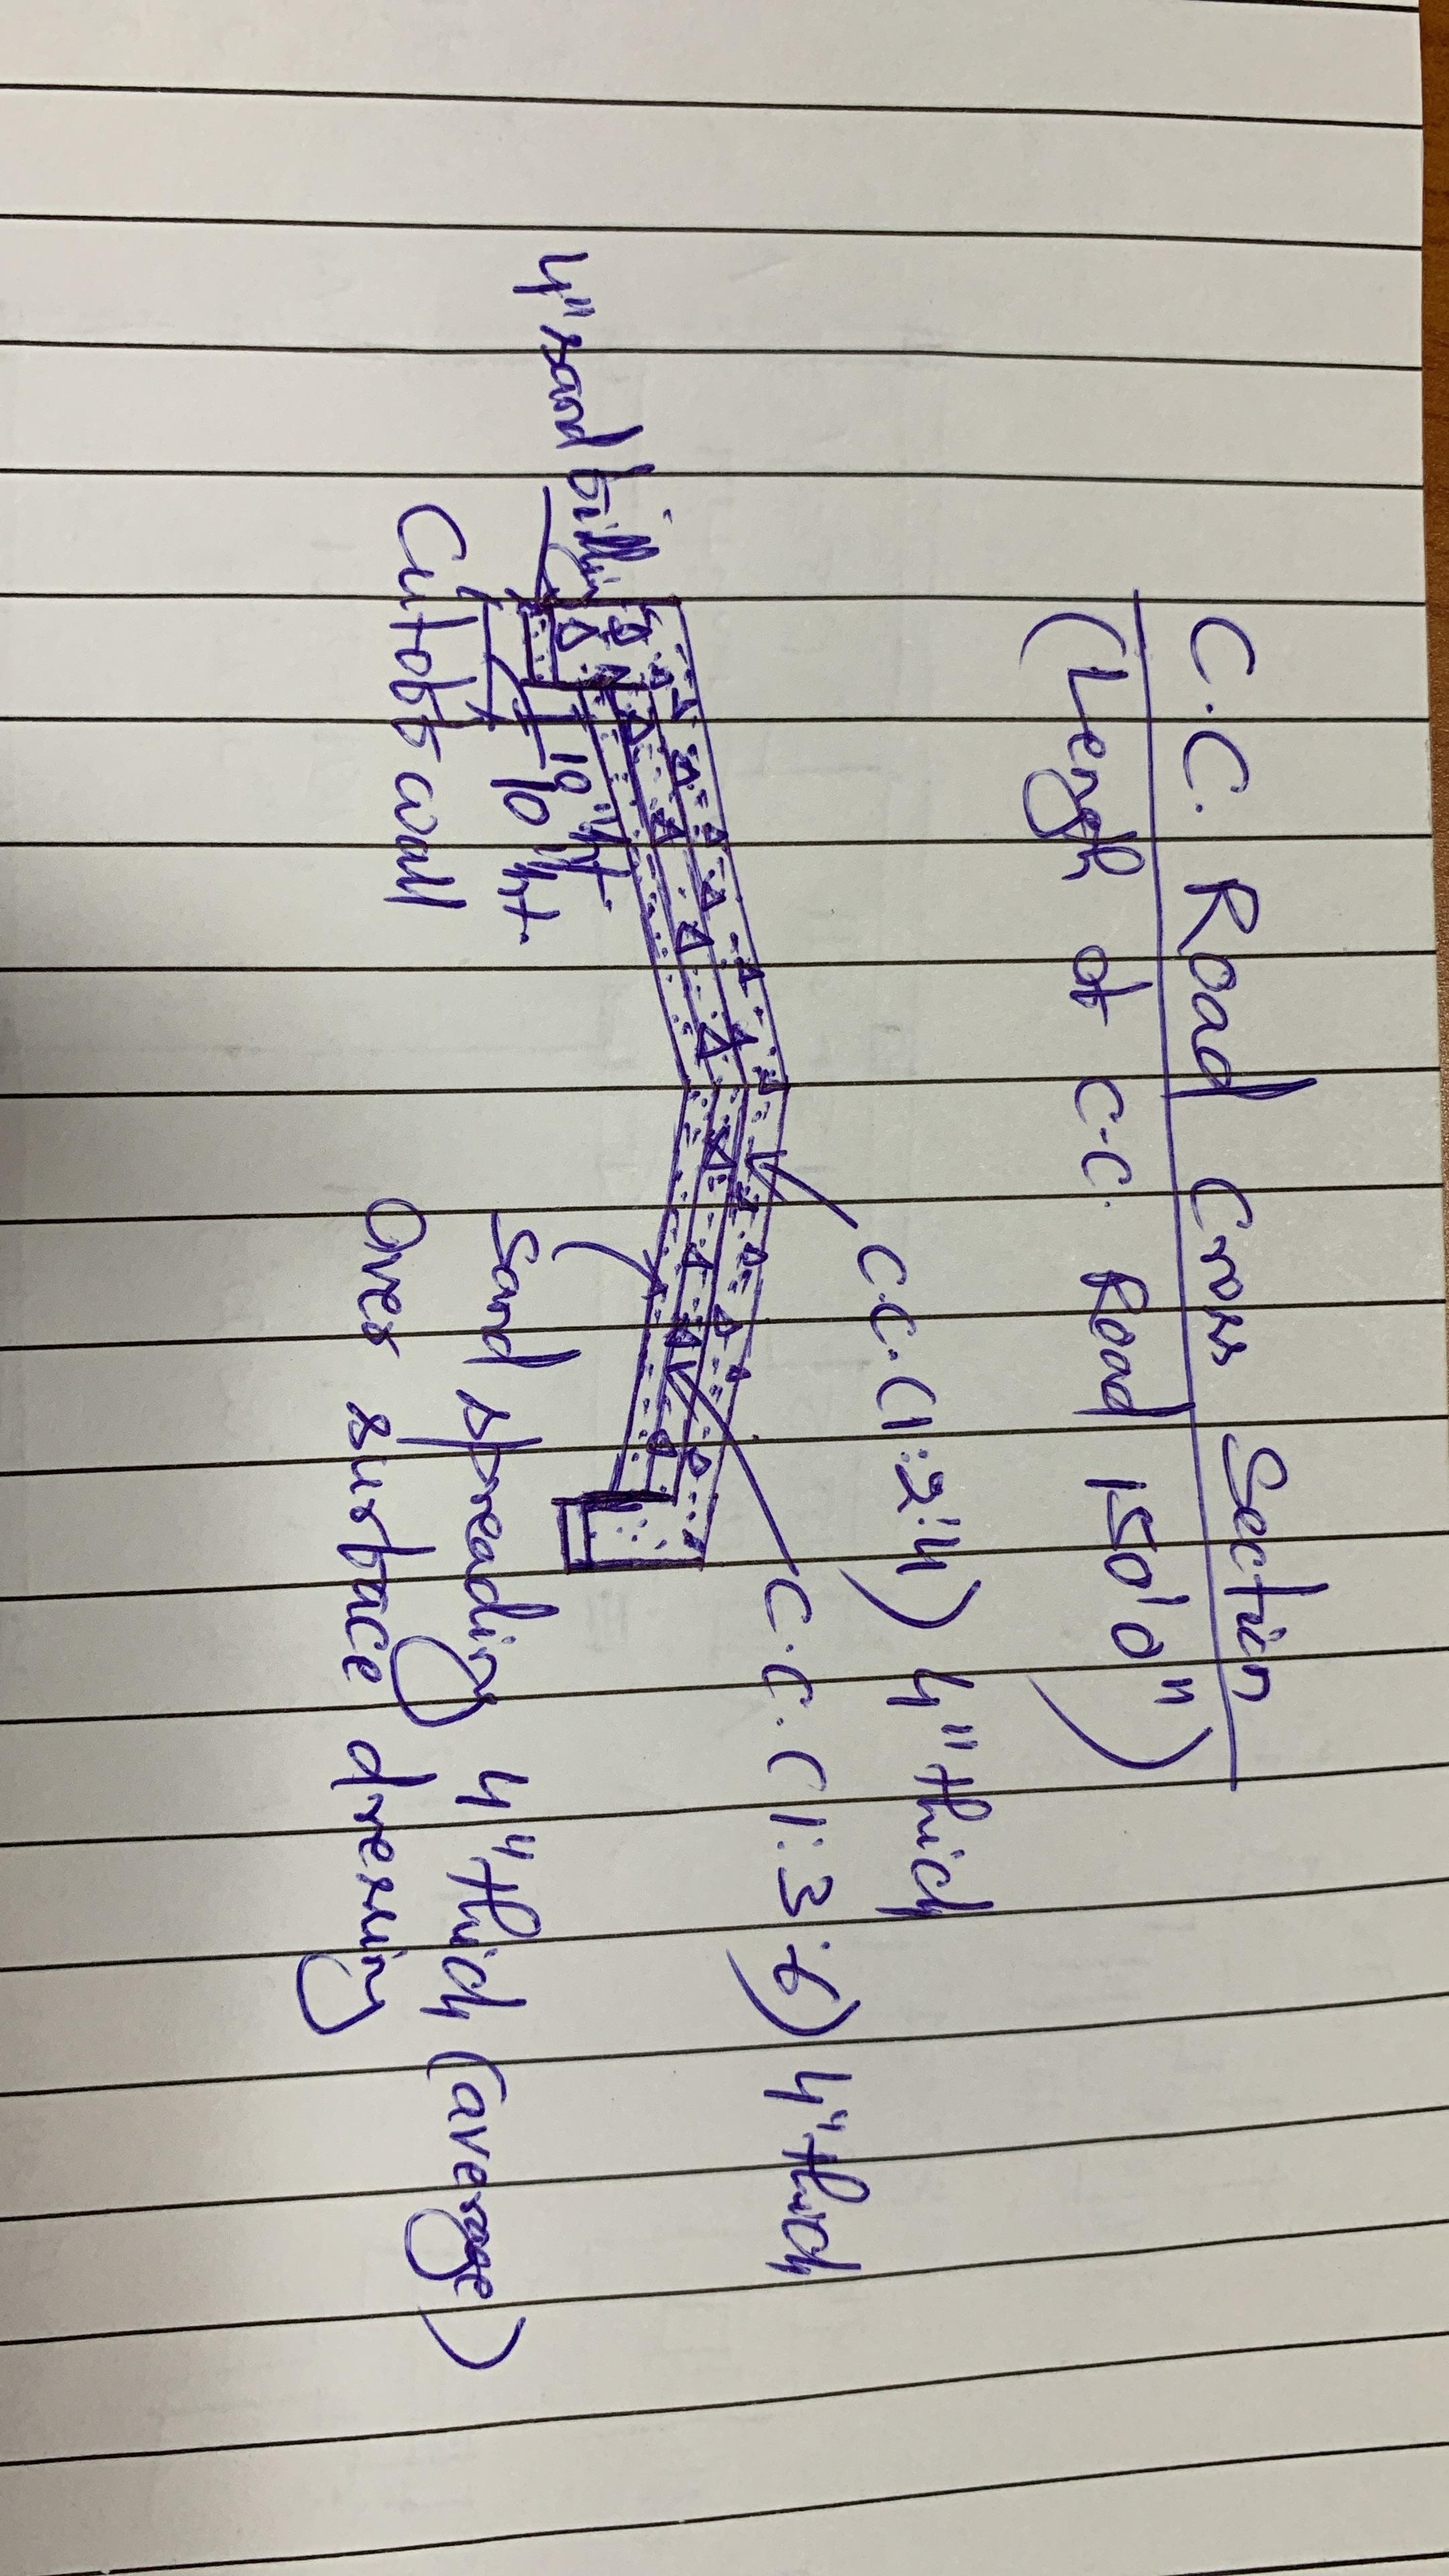 C.C. Road Cross Section
(Length of C.C. Road 150'0")
C.C.(1:2:4) 4" thick
C.C.(1:3:6) 4" thick
4" sand filling
10" ht.
10" ht.
Cutoff wall
Sand spreading 4" thick (average)
Over surface dressing